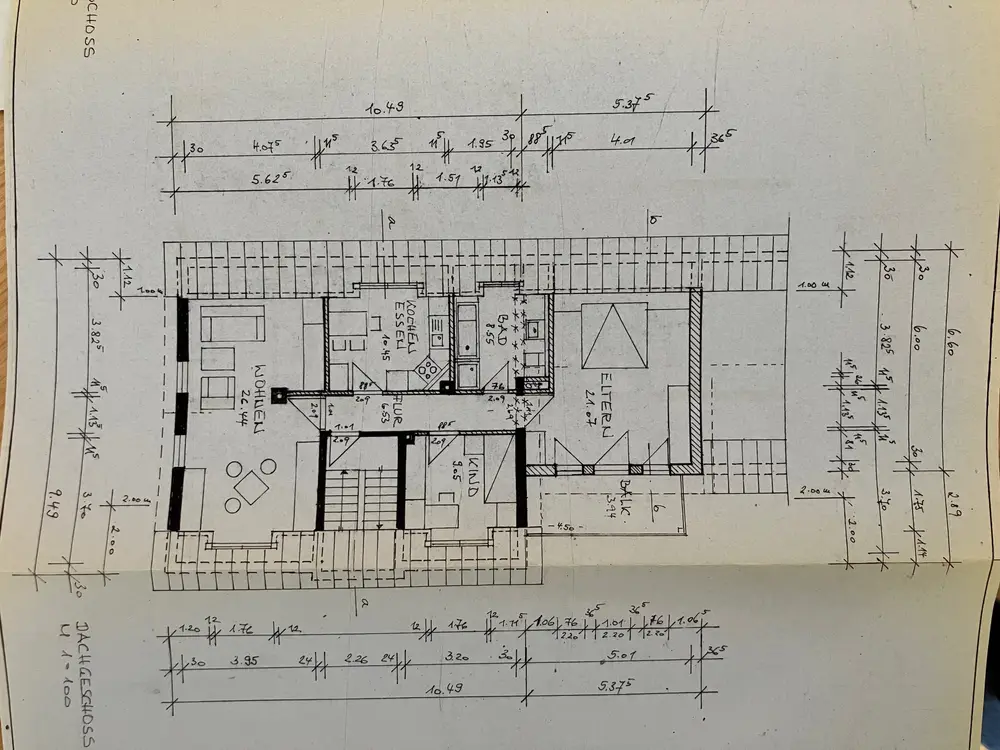 CHOSS
10.49 5.37⁵
30 4.07⁵ 11⁵ 3.63⁵ 11⁵ 1.95 30 88⁵ 11⁵ 4.01 36⁵
5.62⁵ 12 1.76 12 1.51 12 1.13⁵ 12
a b
1.12 1.00 ü
30 3.82⁵ 11⁵ 1.13⁵ 11⁵ 3.70 30
9.49
2.00 ü 2.00
WOHNEN
26.44
KOCHEN
ESSEN
10.45
BAD
8.55
ELTERN
21.07
FLUR
6.53
KIND
9.05
BALK.
3.94
88⁵
2.09
76
2.09
1.01
2.09
88⁵
2.09
4.50
a b
1.12 1.00 ü
30 3.82⁵ 11⁵ 1.13⁵ 11⁵ 3.70
30 6.00 30 1.75 1.14
6.60 2.89
2.00 ü 2.00
1.20 12 1.76 12 12 1.76 12 1.11⁵ 1.06 76 36⁵ 1.01 36⁵ 76 1.06⁵
2.20 2.20 2.20
30 3.95 24 2.26 24 3.20 30 5.01 36⁵
10.49 5.37⁵
DACHGESCHOSS
M 1:100